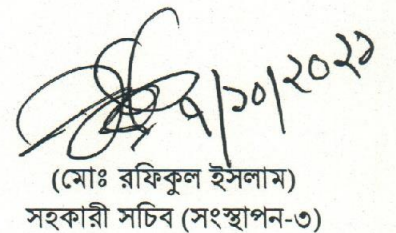 ৭/১০/২০২১
(মোঃ রফিকুল ইসলাম)
সহকারী সচিব (সংস্থাপন-৩)